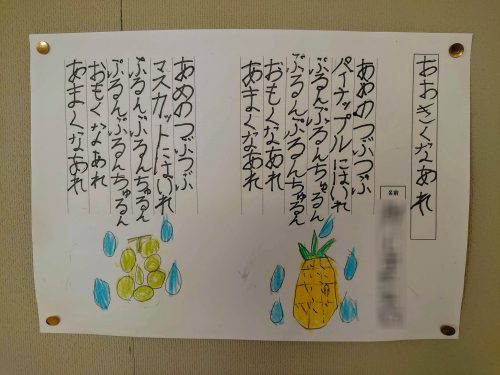 おおきくなあれ
名前
あめのつぶつぶ
パイナップルにはいれ
ぷるんぷるんちゅるん
ぷるんぷるんちゅるん
おもくなあれ
あまくなあれ
あめのつぶつぶ
マスカットにはいれ
ぷるんぷるんちゅるん
ぷるんぷるんちゅるん
おもくなあれ
あまくなあれ